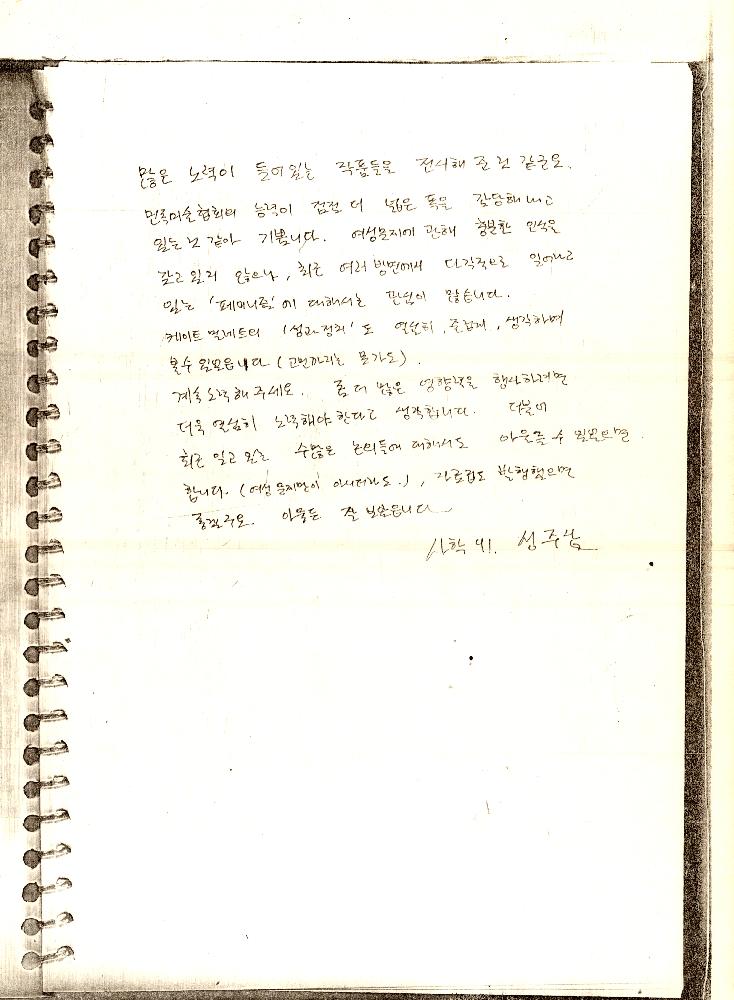 많은 노력이 들어있는 작품들을 전시해 준 것 같군요.
민족미술협회의 능력이 점점 더 넓은 폭을 감당해내고
있는 것 같아 기쁩니다. 여성문제에 관해 충분한 인식을
갖고 있지 않으나, 최근 여러방면에서 다각적으로 일어나고
있는 '페미니즘'에 대해서는 관심이 많습니다.
케이트 밀레트의 '성과 정치'도 열심히, 즐겁게, 생각하며
볼 수 있었습니다 (고번까지는 몰라도).
계속 노력해 주세요. 좀 더 많은 영향력을 행사하려면
더욱 열심히 노력해야 한다고 생각합니다. 더불어
최근 일고 있는 수많은 논의들에 대해서도 아울를 수 있었으면
합니다. (여성문제만이 아니더라도.), 자료집도 발행했으면
좋겠구요. 아뭏든 잘 보았습니다
사학 91. 성주남